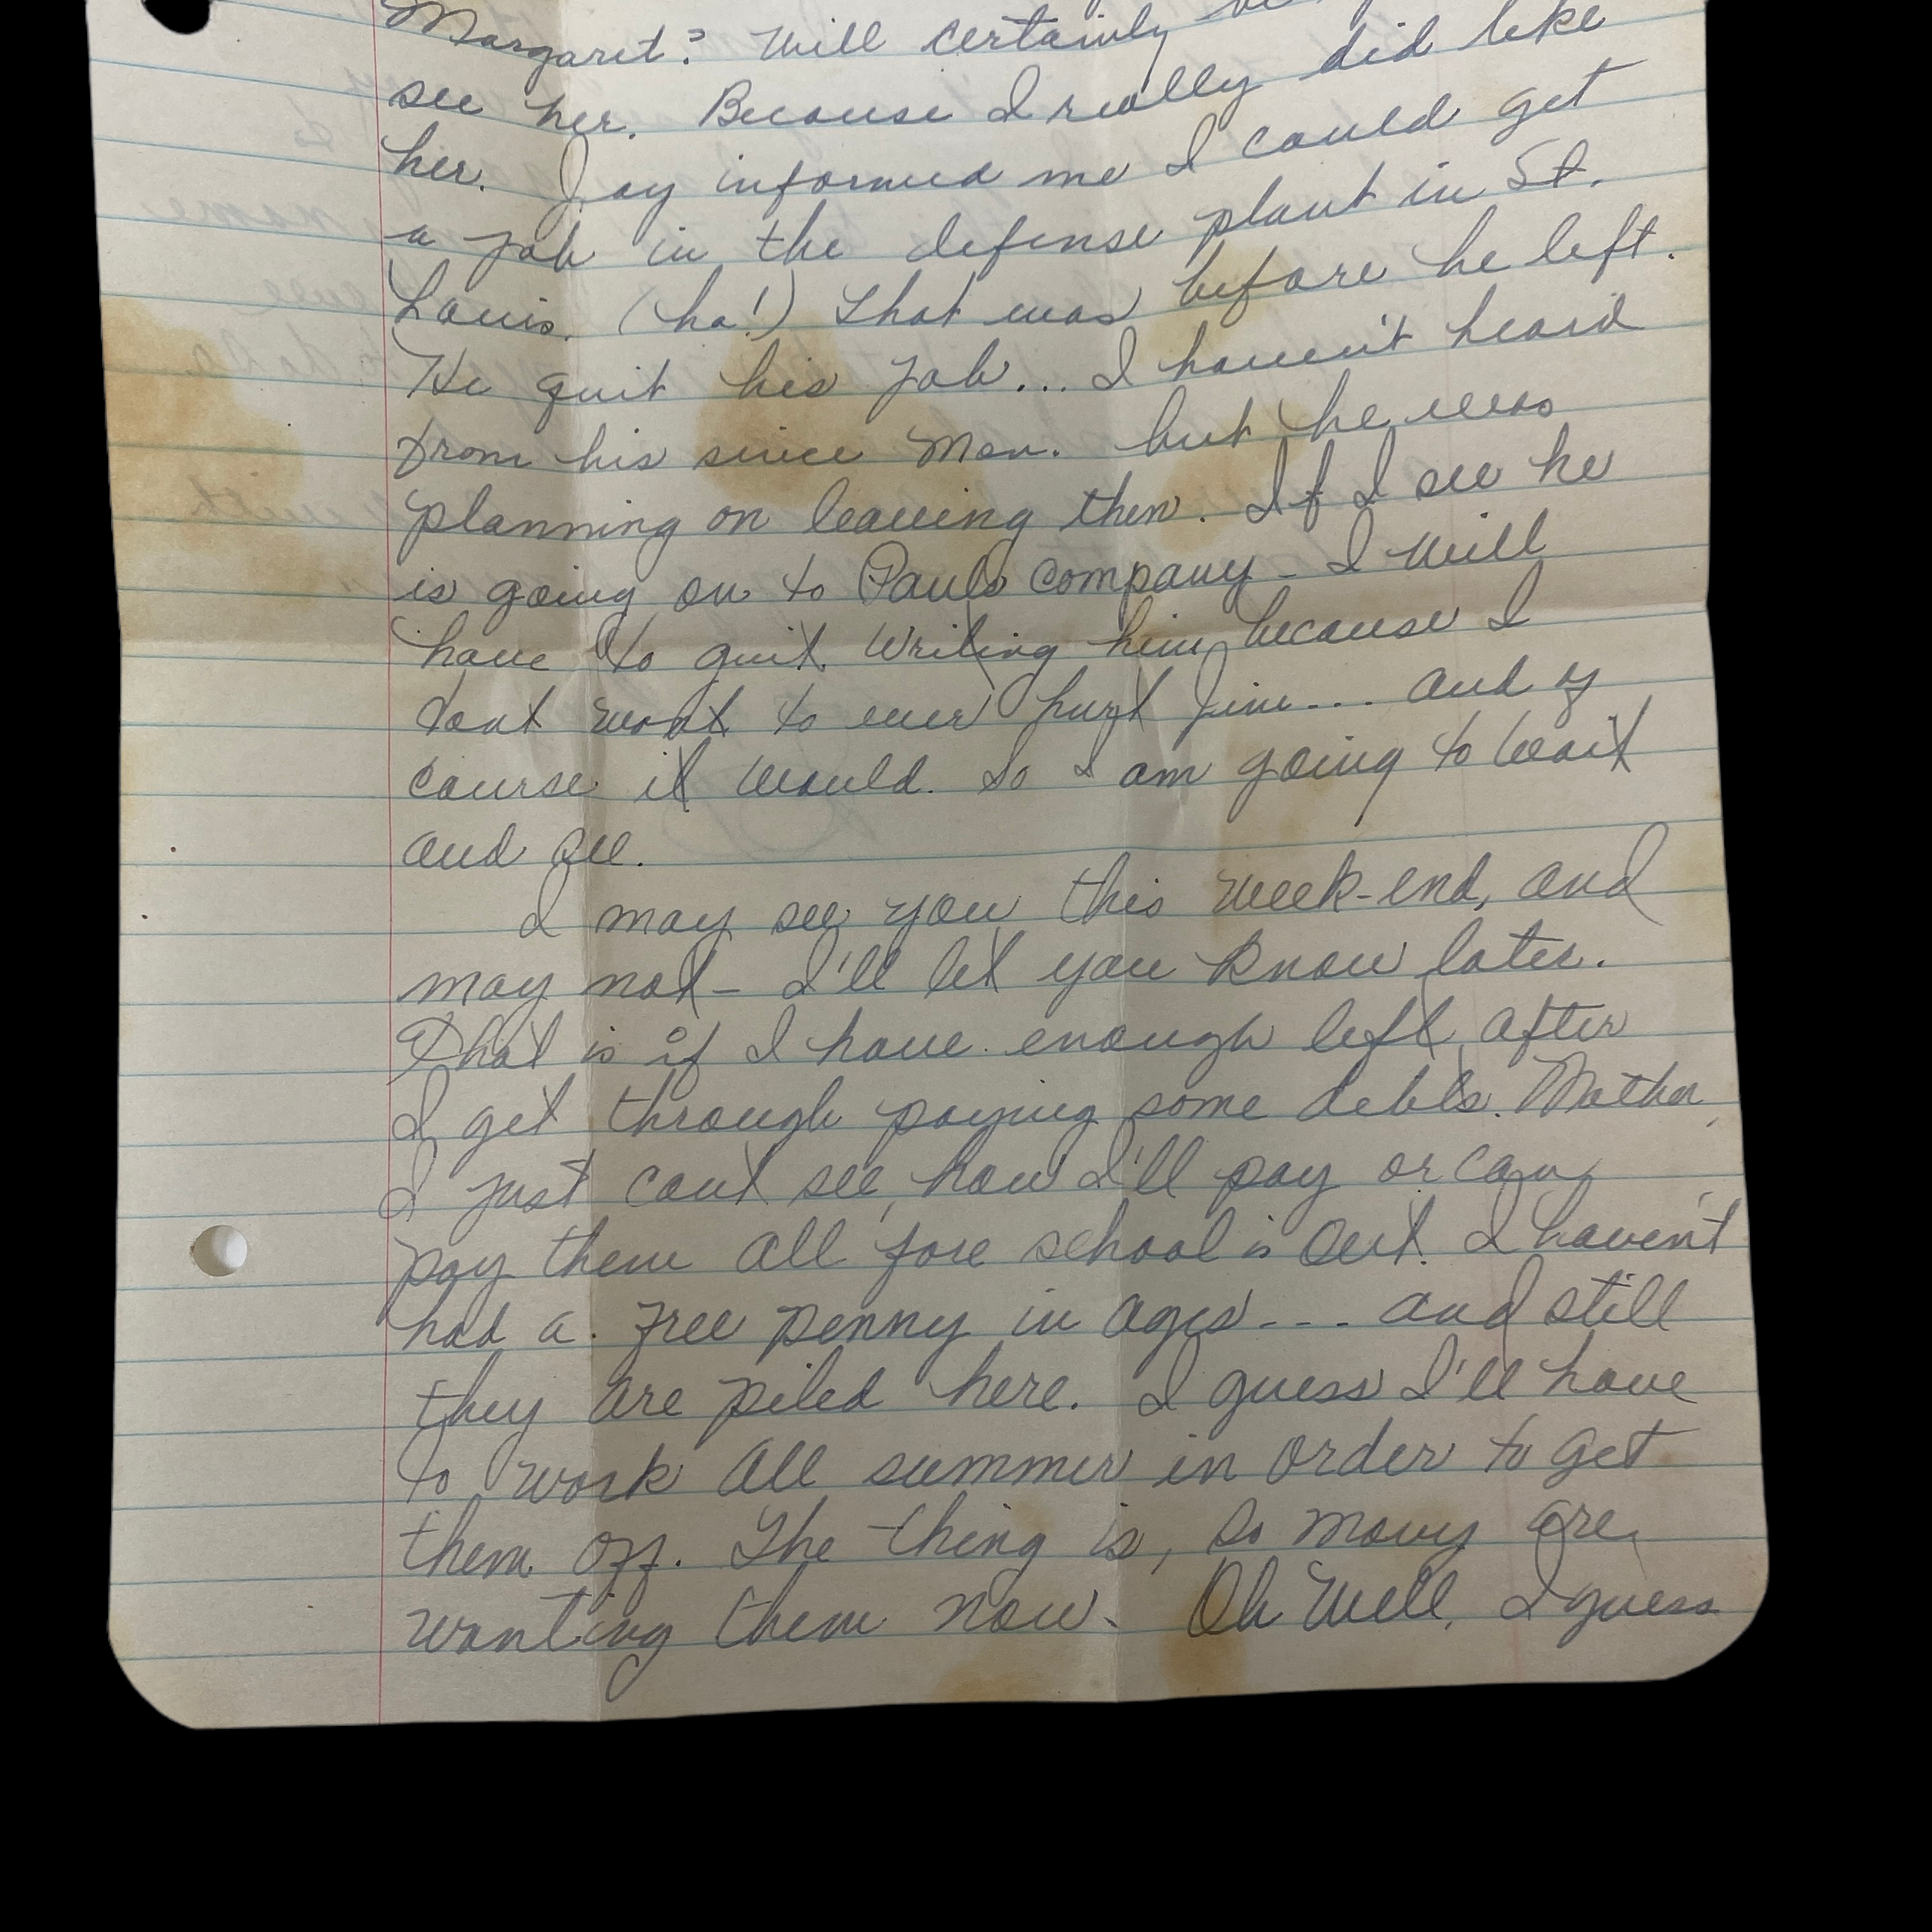 Margaret? Will certainly
see her. Because I really did like
her. Jay informed me I could get
a job in the defense plant in St.
Louis. (ha!) That was before he left.
He quit his job... I haven't heard
from his since Mon. but he was
planning on leaving then. If I see he
is going on to Pauls company - I will
have to quit writing him because I
dont want to ever hurt Jim... and of
course it would. So I am going to wait
and see.
I may see you this week-end, and
may not - I'll let you know later.
That is if I have enough left after
I get through paying some debts. Mother,
I just cant see, how I'll pay or can
pay them all fore school is out. I haven't
had a free penny in ages--- and still
they are piled here. I guess I'll have
to work all summer in order to get
them off. The thing is, so many are
wanting them now. Oh Well, I guess